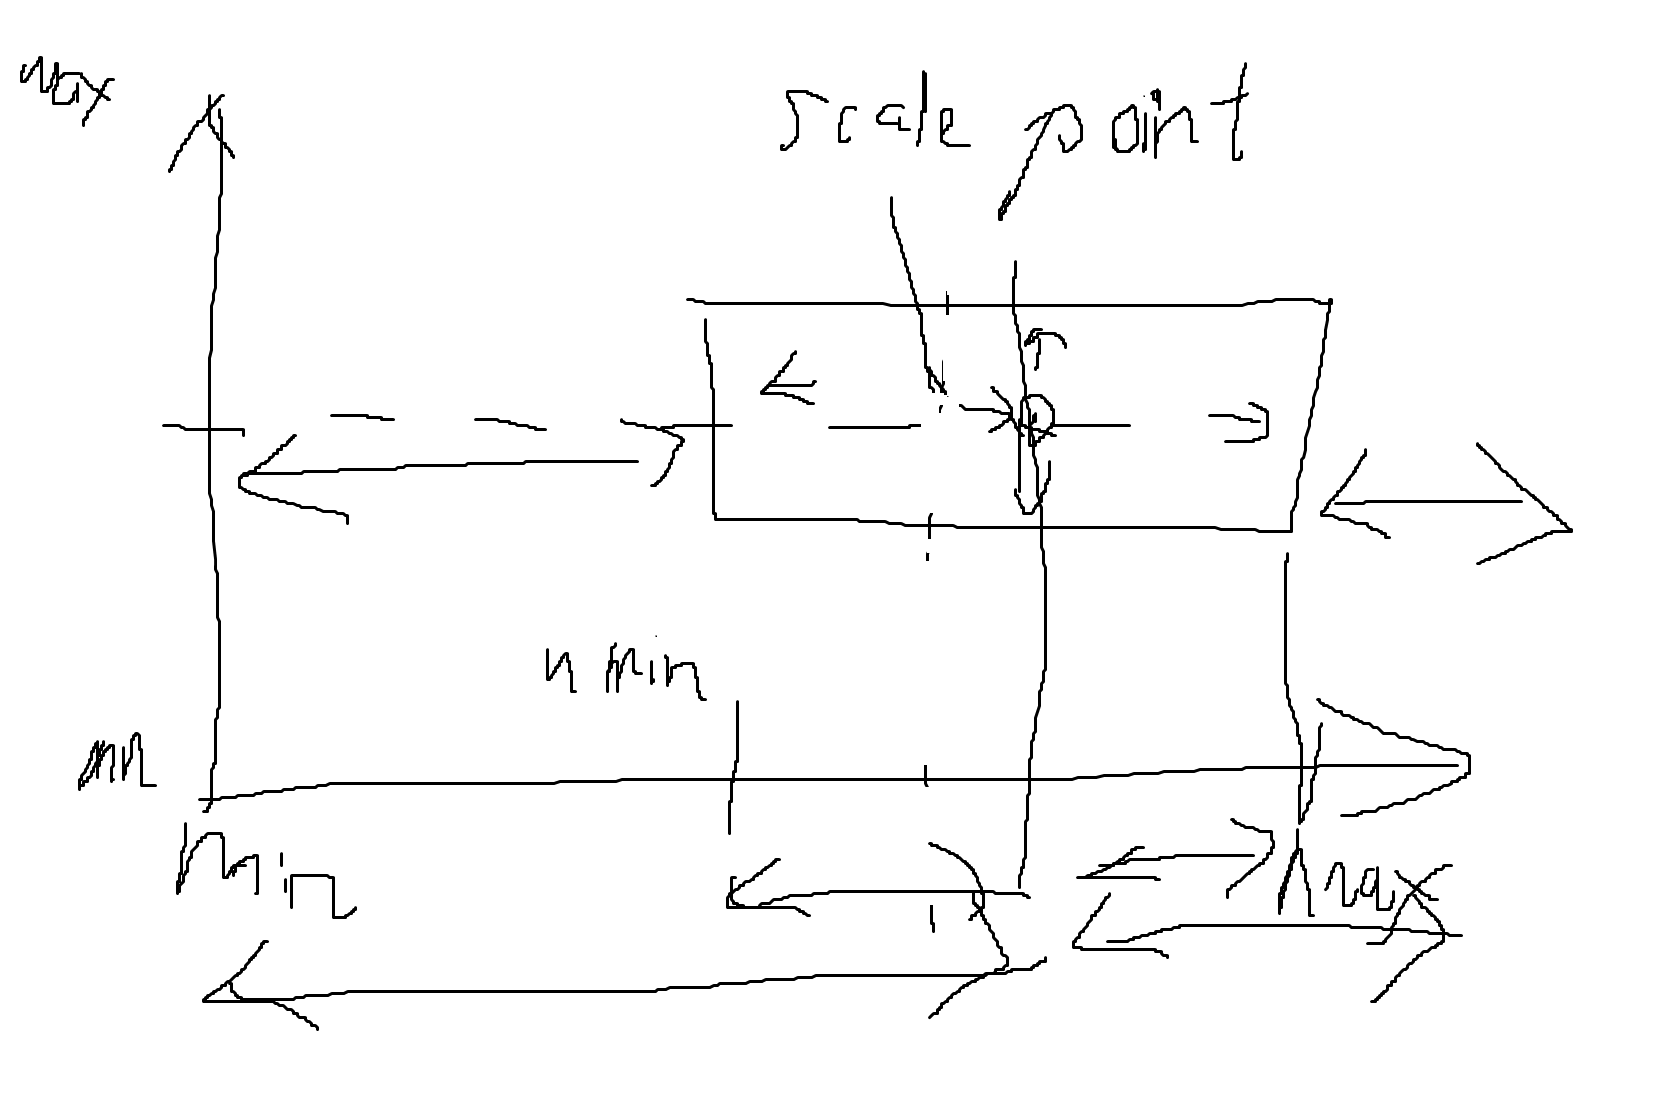 max
scale point
n min
mn
Min
Max